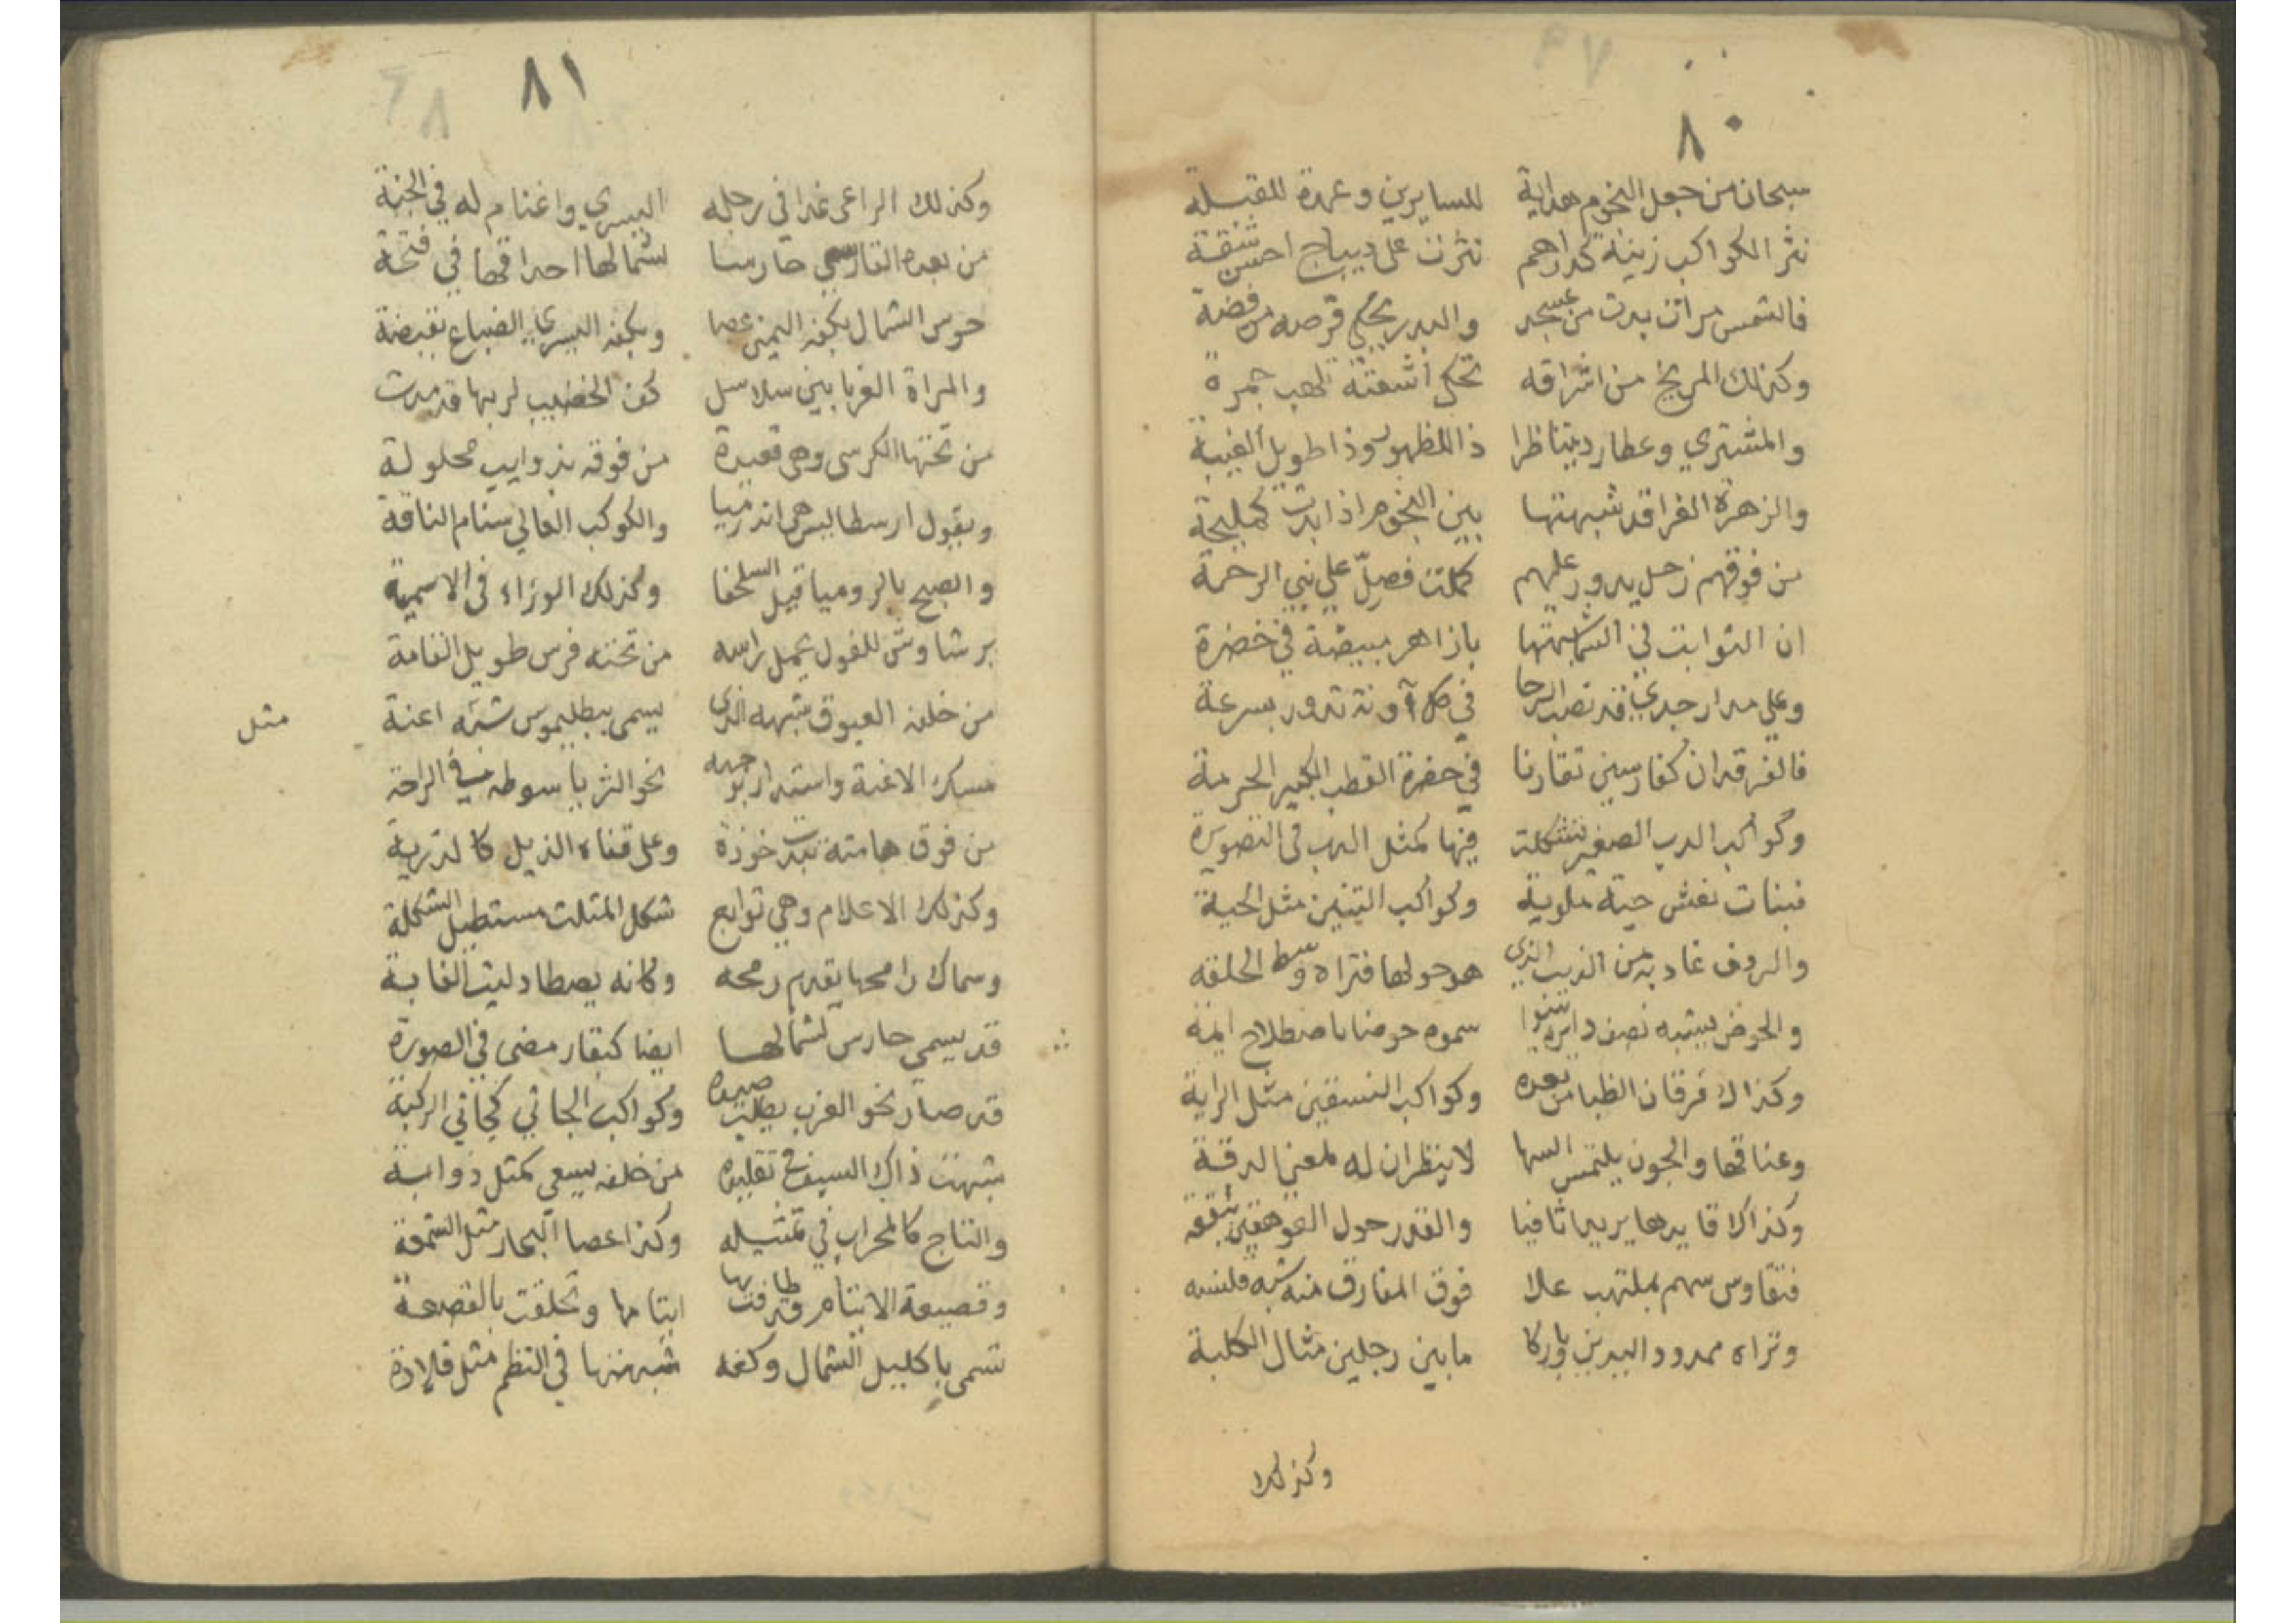 ٨٠
سبحان من جعل النجوم هداية للسايرين وعمدة للقبلة
نثر الكواكب زينة كدراهم نثرت على ديباج احسن شقة
فالشمس مرات بدت من عسجد والبدر يحكي قرصه من فضة
وكذلك المريخ من اشراقه تحكي اشعته لهب جمرة
والمشتري وعطارد يتناظرا ذا للظهور وذا طويل الغيبة
والزهرة الغرا قد شبهتها بين النجوم اذا بدت كمليحة
من فوقهم زحل يدور عليهم كملت فصلّ على نبي الرحمة
ان الثوابت في السما شبهتها بازاهر مبيضة في خضرة
وعلى مدار جدي قد نصب الرحا في كل آونة تدور بسرعة
فالفرقدان كفارسين تقارنا في حفرة القطب الكبير الحرمة
وكواكب الدب الصغير تشكلت فيها كمثل الدب في التصويرة
فبنات نعش حية ملوية وكواكب التنين مثل الحية
والروف غادية من الذيب الذي هو حولها فتراه وسط الحلقه
والحوض يشبه نصف دايرة سموه حوضا باصطلاح ايمة
وكذاك فرقان الظبا من بعده وكواكب النسقين مثل الراية
وعناقها والجون يلتمس السها لا ينظران له لمعنى الدقة
وكذاك قايدها يريها ثافيا والقدر حول العوهقين
فتقاوس سهم بملتهب علا فوق المفارق منه شبه قلنسه
وتراه ممدود اليدين باركا مابين رجلين مثال الكلبة
وكذلك
٨١
وكذلك الراعي غدا في رجله اليسري واغنام له في الجنة
من بعده الفارسي حارسا لشمالها احداقها في فتحة
حوس الشمال بكفه اليمنى عصا وبكفه اليسري الضباع بقبضة
والمراة الغربا بين سلاسل كف الخضيب لربها قد مدت
من تحتها الكرسي وهي قعيدة من فوقه بذوايب محلولة
ويقول ارسطاليس هي اندرميا والكوكب العالي سنام الناقة
والصبح بالروميا قيل السلحفا وكذلك الوزاء في الاسمية
برشاوش للغول يحمل راسه من تحته فرس طويل القامة
من خلفه العيوق شبهه الذي يسمى ببطليموس شبه اعنة
مثل
مسك الاعنة واستدار بوجهه نحو الثريا سوطه في الراحة
من فوق هامته تبدت خوذة وعلى قفاه الذيل كالترية
وكذلك الاعلام وهي توابع شكل المثلث مستطيل الشكلة
وسماك رامحها يقدم رمحه وكانه يصطاد ليث الغابة
قد يسمى حارس لشمالها ايضا كبقار مضى في الصورة
قد صار نحو الغرب يطلب صيده وكواكب الجاثي كجاثي الركبة
شبهت ذاك السيف في تقليده من خلفه يسعي كمثل ذوابة
والتاج كالمحراب في تمثيله وكذا عصا البحار مثل الشمعة
وقصيعة الايتام قد طافت بها ايتامها وتحلقت بالقصعة
تسمى باكليل الشمال وكفه شبهتها في النظم مثل قلادة